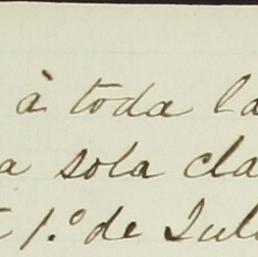 à toda la
a sola cla
1.º de Jul